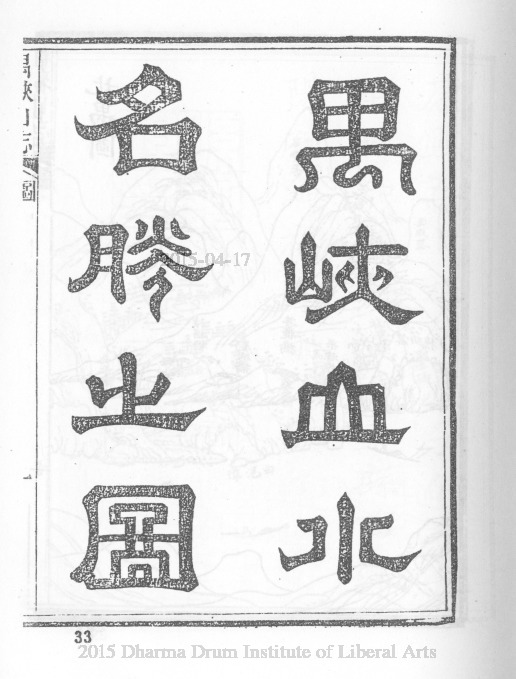 禺峽山水
名勝之圖
禺峽山志
圖
2015-04-17
33
2015 Dharma Drum Institute of Liberal Arts